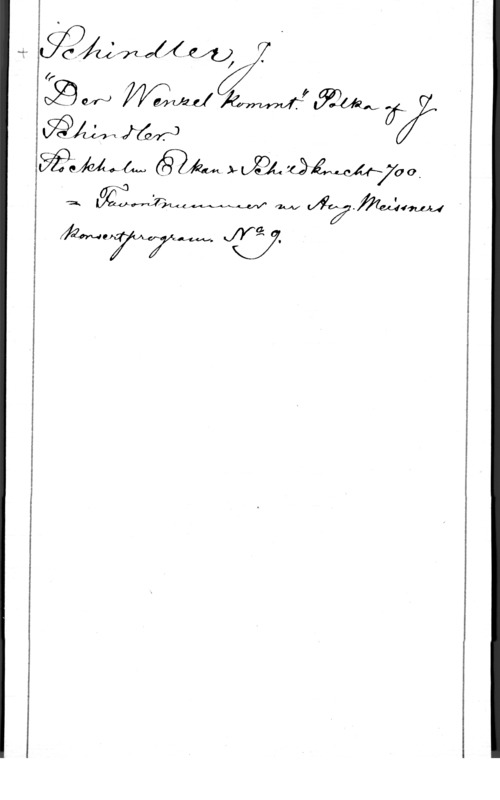 Schindler, J.
"Der Wenzel kommt." Polka af J.
Schindler.
Stockholm Elkan & Schildknecht 700.
= Favoritnummer ur Aug. Meissners
konsertprogram No 9.